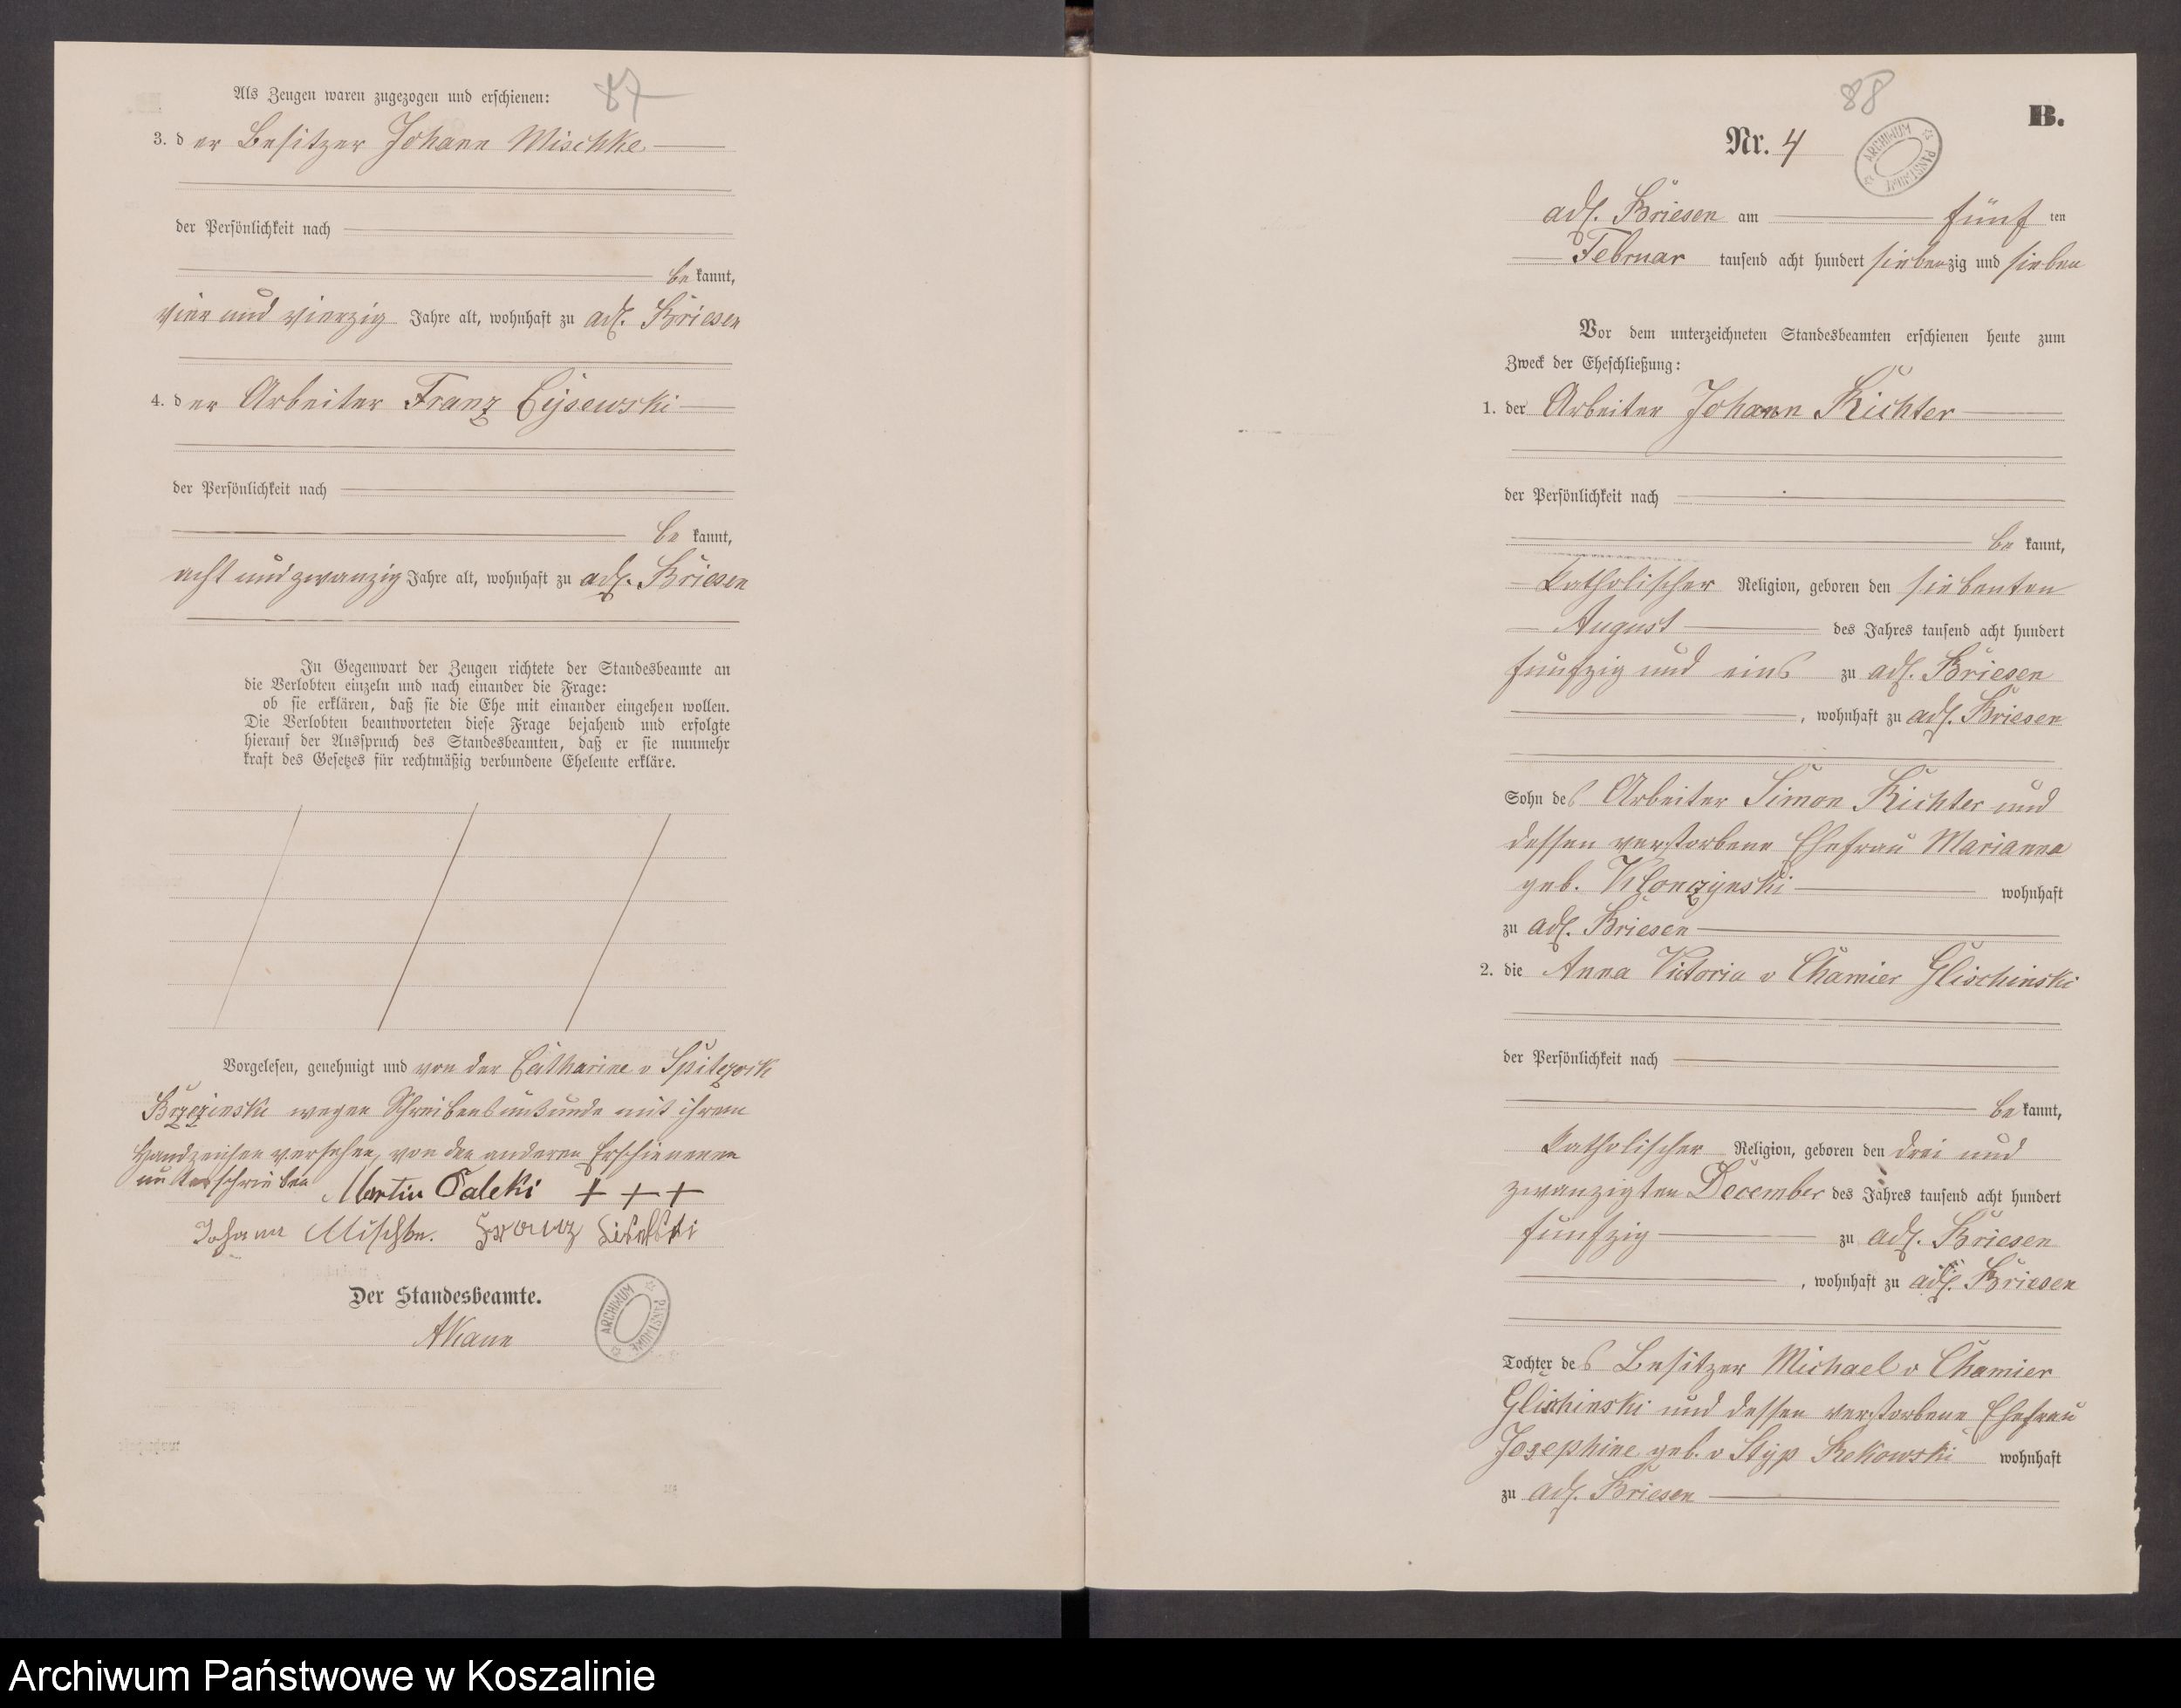 87
Als Zeugen waren zugezogen und erschienen:
3. der Besitzer Johann Mischke
der Persönlichkeit nach
bekannt,
vier und vierzig Jahre alt, wohnhaft zu adl. Briesen
4. der Arbeiter Franz Cysewski
der Persönlichkeit nach
bekannt,
acht und zwanzig Jahre alt, wohnhaft zu adl. Briesen
In Gegenwart der Zeugen richtete der Standesbeamte an
die Verlobten einzeln und nach einander die Frage:
ob sie erklären, daß sie die Ehe mit einander eingehen wollen.
Die Verlobten beantworteten diese Frage bejahend und erfolgte
hierauf der Ausspruch des Standesbeamten, daß er sie nunmehr
kraft des Gesetzes für rechtmäßig verbundene Eheleute erkläre.
Vorgelesen, genehmigt und von der Catharine v
Brzezinski wegen Schreibensunkunde mit ihrem
Handzeichen versehen, von den anderen Erschienenen
unterschrieben Martin + + +
Johann Mischke. Franz
Der Standesbeamte.
ARCHIWUM PAŃSTWOWE
88
B.
Nr. 4
ARCHIWUM PAŃSTWOWE
adl. Briesen am fünften
Februar tausend acht hundert siebenzig und sieben
Vor dem unterzeichneten Standesbeamten erschienen heute zum
Zweck der Eheschließung:
1. der Arbeiter Johann Richter
der Persönlichkeit nach
bekannt,
katholischer Religion, geboren den siebenten
August des Jahres tausend acht hundert
fünfzig und eins zu adl. Briesen
, wohnhaft zu adl. Briesen
Sohn des Arbeiter Simon Richter und
dessen verstorbene Ehefrau Marianna
geb. Klonczynski wohnhaft
zu adl. Briesen
2. die Anna Victoria v Chamier Glischinski
der Persönlichkeit nach
bekannt,
katholischer Religion, geboren den drei und
zwanzigten December des Jahres tausend acht hundert
fünfzig zu adl. Briesen
, wohnhaft zu adl. Briesen
Tochter des Besitzer Michael v Chamier
Glischinski und dessen verstorbene Ehefrau
Josephine geb. v Styp Rekowski wohnhaft
zu adl. Briesen
Archiwum Państwowe w Koszalinie